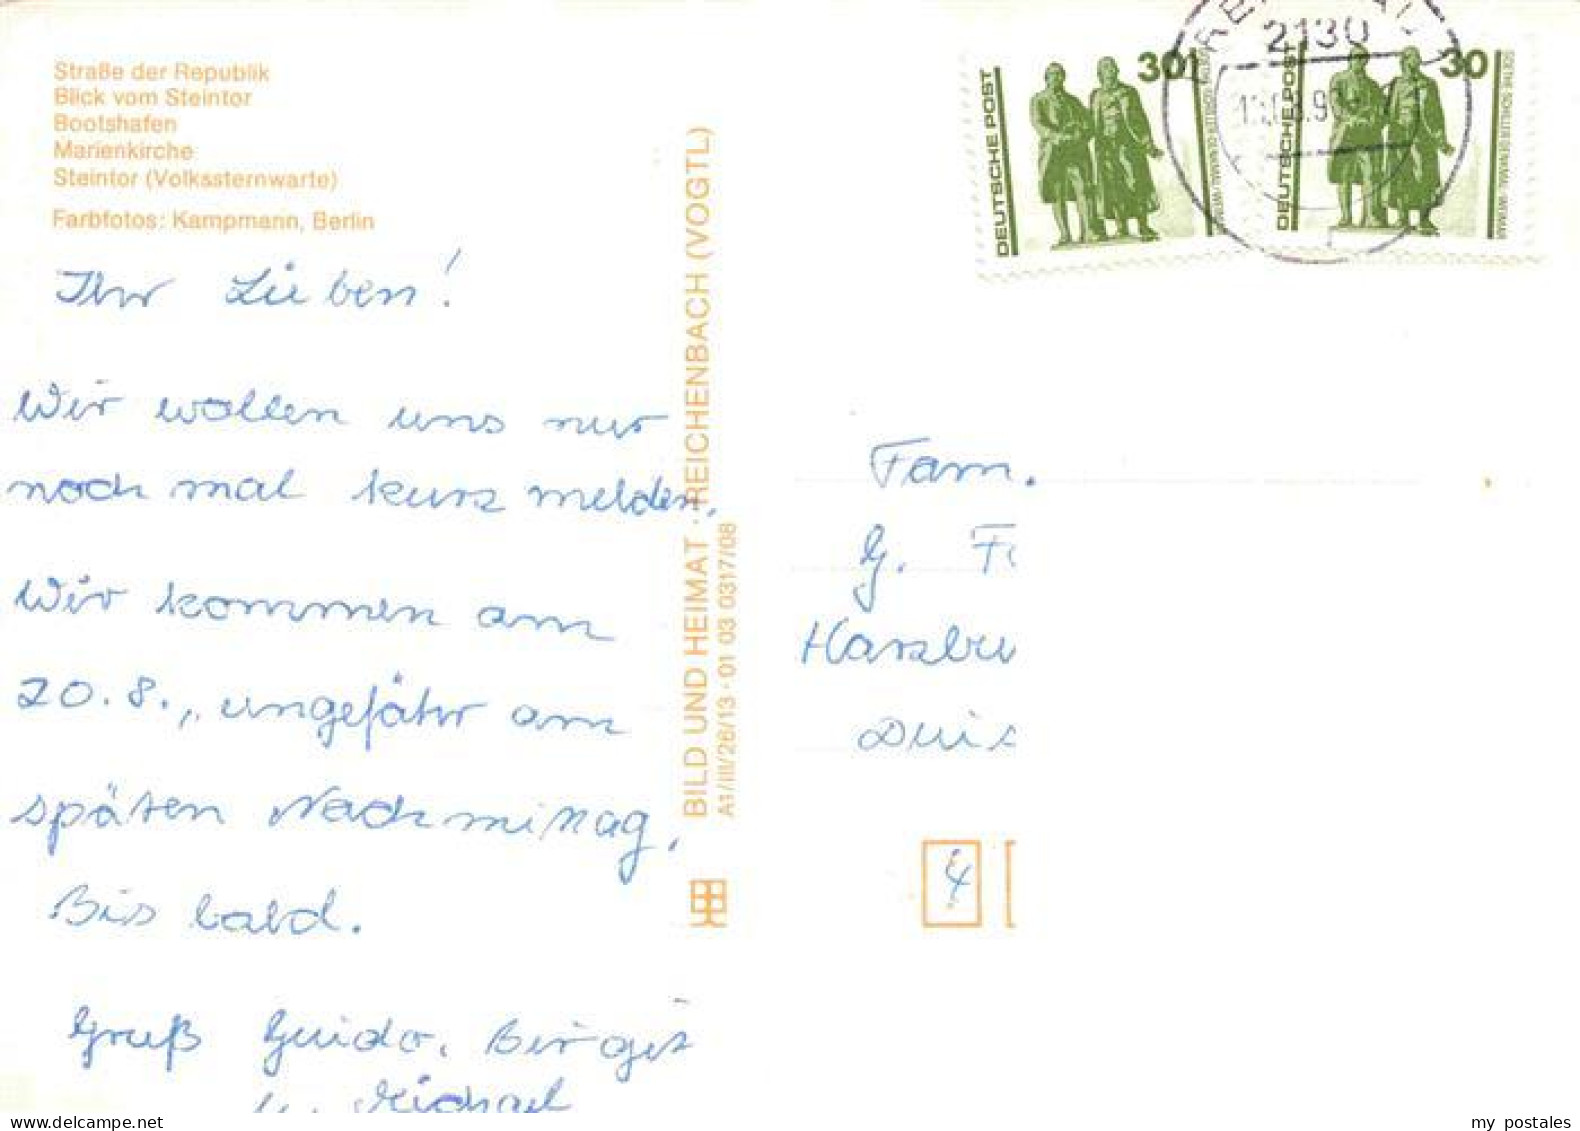 Straße der Republik
Blick vom Steintor
Bootshafen
Marienkirche
Steintor (Volkssternwarte)
Farbfotos: Kampmann, Berlin
Ihr Lieben!
Wir wollen uns nur
noch mal kurz melden.
Wir kommen am
20.8., ungefähr am
späten Nachmittag.
Bis bald.
Gruß Guido, Birgit
u. Michael
BILD UND HEIMAT · REICHENBACH (VOGTL)
A1/III/26/13 · 01 03 0317/08
DEUTSCHE POST
30
DEUTSCHE POST
30
GOETHE-SCHILLER-DENKMAL/WEIMAR
2130
Fam.
G.
4
delcampe.net
my postales